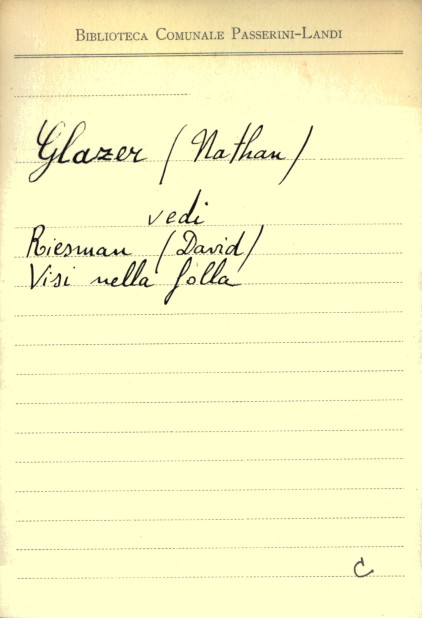 Biblioteca Comunale Passerini-Landi
Glazer (Nathan)
vedi
Riesman (David)
Visi nella folla
C